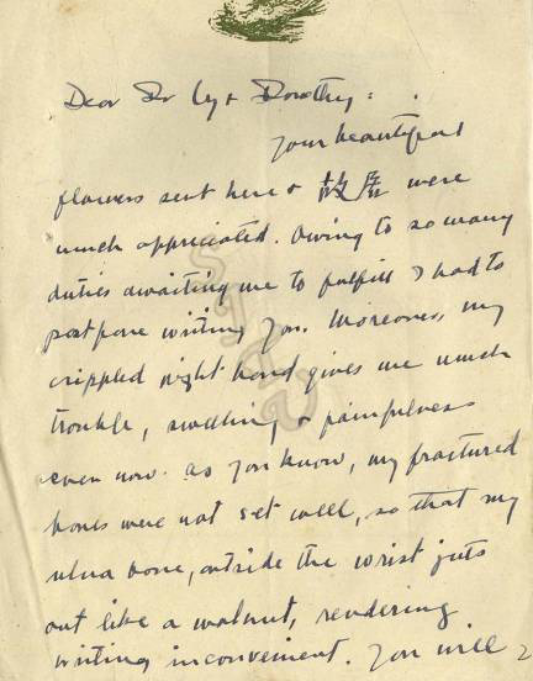 Dear Dr Cy & Dorothy:
Your beautiful
flowers sent here & 故居 were
much appreciated. Owing to so many
duties awaiting me to fulfill I had to
postpone writing you. Moreover, my
crippled right hand gives me much
trouble, swelling & painfulness
even now. As you know, my fractured
bones were not set well, so that my
ulna bone, outside the wrist juts
out like a walnut, rendering
writing inconvenient. You will